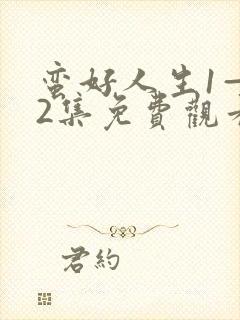 蛮好人生1—
2集免費觀看
君約